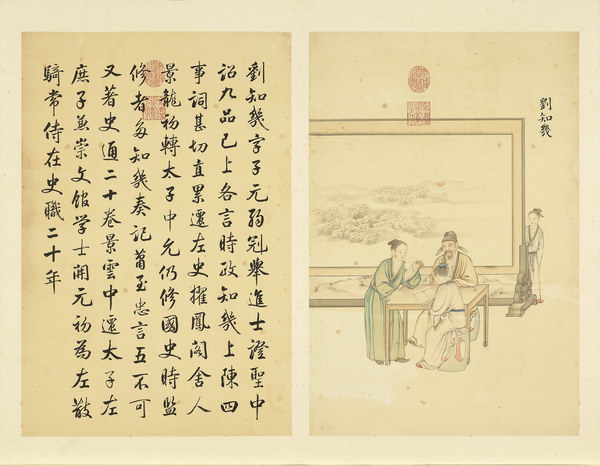 劉知幾
劉知幾字子元弱冠舉進士證聖中
詔九品已上各言時政知幾上陳四
事詞甚切直累遷左史擢鳳閣舍人
景龍初轉太子中允仍修國史時監
修者多知幾奏記蕭至忠言五不可
又著史通二十卷景雲中遷太子左
庶子兼崇文館学士開元初為左散
騎常侍在史職二十年